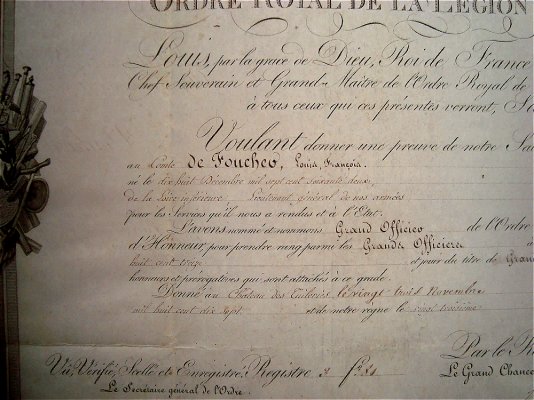 ORDRE ROYAL DE LA LÉGION
Louis, par la grace de Dieu, Roi de France
Chef Souverain et Grand-Maitre de l'Ordre Royal de
à tous ceux qui ces présentes verront, Sa
Voulant donner une preuve de notre Sa
au Comte de Foucheo, Louis, François.
né le dix huit Décembre mil sept cent soixante deux,
de la Loire inférieure. Lieutenant général de nos armées
pour les Services qu'il nous a rendus et à l'Etat.
L'avons nommé et nommons Grand Officier de l'Ordre
d'Honneur, pour prendre rang parmi les Grands Officiers à
huit cent treize et jouir du titre de Gran
honneurs et prérogatives qui sont attachés à ce grade.
Donné au Chateau des Tuileries, le vingt trois Novembre
mil huit cent dix sept. et de notre règne le vingt troisième
Vu, Vérifié, Scellé et Enregistré, Registre 3 fo. 31
Par le R
Le Secrétaire général de l'Ordre.
Le Grand Chance